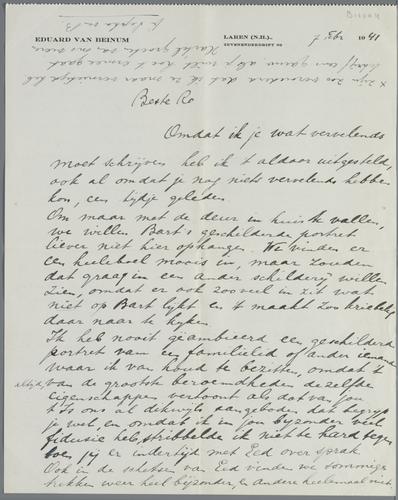 EDUARD VAN BEINUM
LAREN (N.H.),
ZEVENENDERDRIFT 90
7 Febr 1941
Beste Ro
Omdat ik je wat vervelends
moet schrijven heb ik 't aldoor uitgesteld,
ook al omdat je nog niets vervelends hebben
kon, een tijdje geleden.
Om maar met de deur in huis te vallen,
we willen Bart's geschilderde portret
liever niet hier ophangen. We vinden er
een heeleboel moois in, maar zouden
dat graag in een ander schilderij willen
zien, omdat er ook zooveel in zit wat
niet op Bart lijkt en 't maakt zoo kriebelig
daar naar te kijken.
Ik heb nooit geambieerd een geschilderd
portret van een familielid of ander iemand
waar ik van houd te bezitten, omdat 't
altijd, van de grootste beroemdheden dezelfde
eigenschappen vertoont als dat van jou
't Is ons al dikwijls aangeboden dat begrijp
je wel, en omdat ik in jou bijzonder veel
fiducie heb, stribbelde ik niet te hard tegen
toen jij er indertijd met Eed over sprak
Ook in de schetsen van Eed vinden we sommige
trekken weer heel bijzonder, en andere heelemaal niet